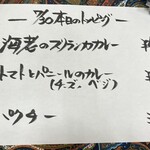 ー 7/30 本日のトッピング ー
海老のスリランカカレー
トマトとパニールのカレー
(チーズ、ベジ)
パクチー